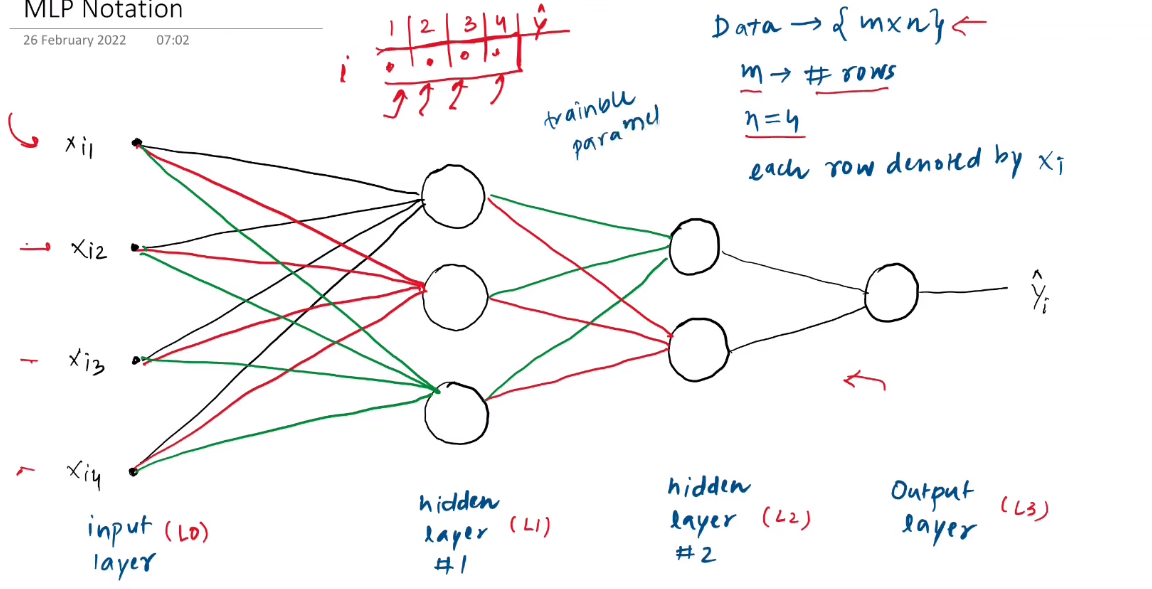 MLP Notation
26 February 2022 07:02
1 2 3 4 ŷ
i
Data → { m x n } ←
m → # rows
n = 4
each row denoted by xi
trainble
paramel
xi1
xi2
xi3
xi4
ŷi
input (L0)
layer
hidden
layer (L1)
#1
hidden
layer (L2)
#2
Output (L3)
layer